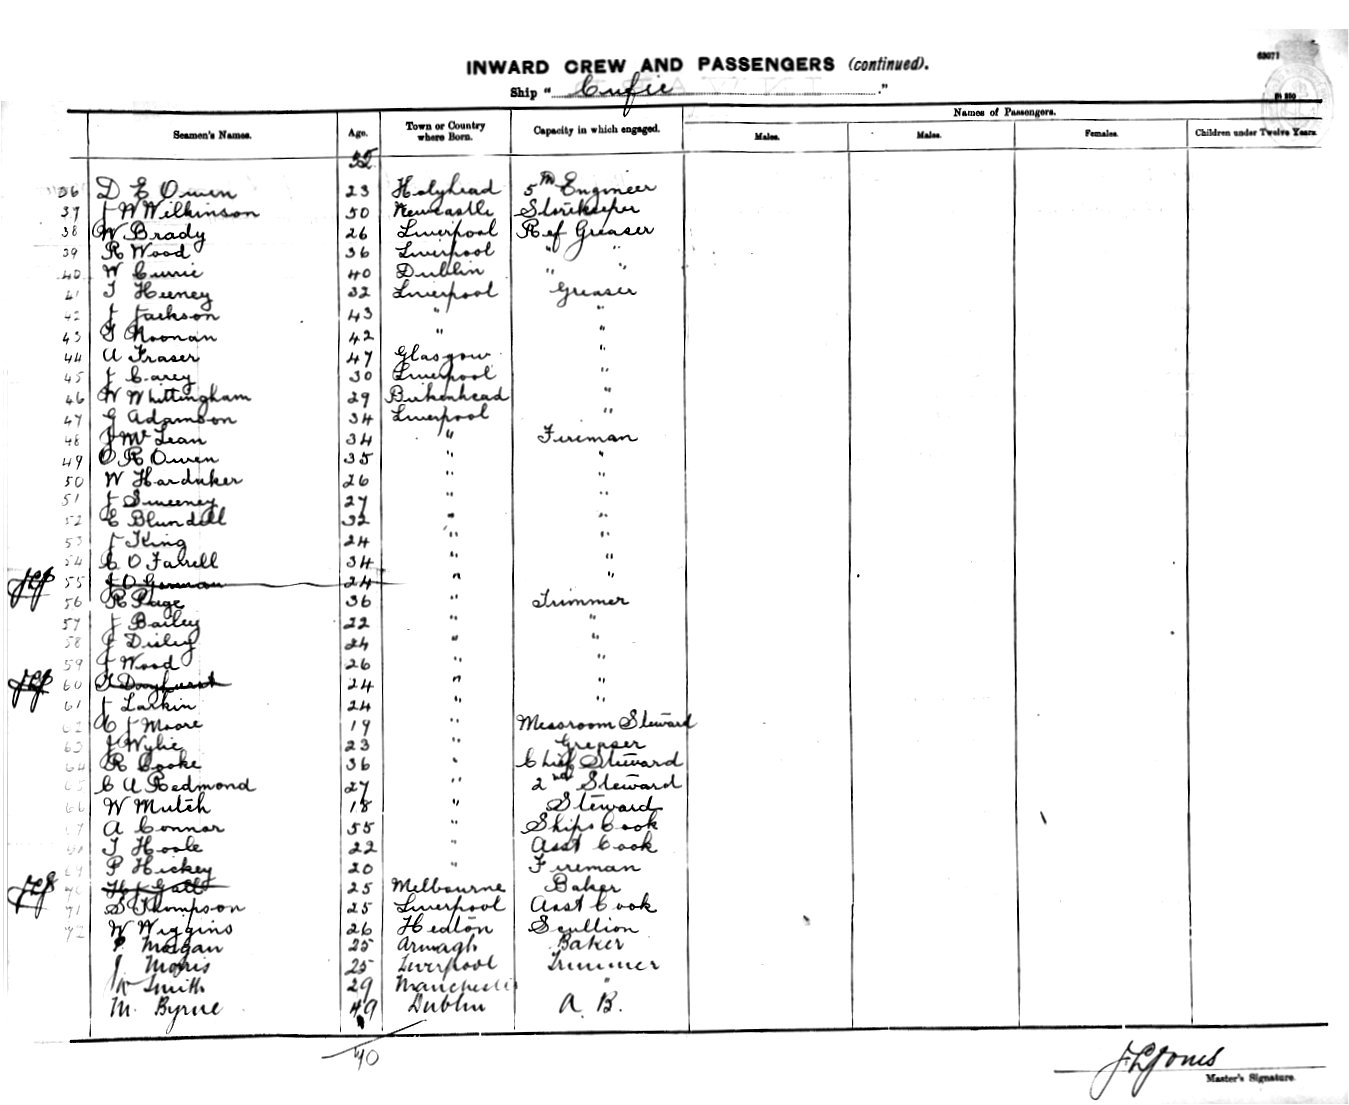 63071
INWARD CREW AND PASSENGERS (continued).
Ship "Cufic"
Pt 350
Seamen's Names. Age. Town or Country where Born. Capacity in which engaged. Names of Passengers.
Males. Males. Females. Children under Twelve Years.
35
36 D E Owen 23 Holyhead 5th Engineer
37 J W Wilkinson 50 Newcastle Storekeeper
38 W Brady 26 Liverpool Ref Greaser
39 R Wood 36 Liverpool " "
40 W Currie 40 Dublin " "
41 T Heeney 32 Liverpool Greaser
42 J Jackson 43 " "
43 T Noonan 42 " "
44 A Fraser 47 Glasgow "
45 J Carey 30 Liverpool "
46 W Whittingham 29 Birkenhead "
47 G Adamson 34 Liverpool "
48 J McLean 34 " Fireman
49 O R Owen 35 " "
50 W Hardaker 26 " "
51 J Sweeney 27 " "
52 E Blundell 32 " "
53 J King 24 " "
54 C O Farrell 34 " "
JLJ 55 J O Gorman 24 " "
56 R Page 36 " Trimmer
57 J Bailey 22 " "
58 J Disley 24 " "
59 J Wood 26 " "
JLJ 60 T Donghurst 24 " "
61 J Larkin 24 " "
62 C J Moore 19 " Messroom Steward
63 J Wylie 23 " Greaser
64 R Cooke 36 " Chief Steward
65 C A Redmond 27 " 2nd Steward
66 W Mutch 18 " Steward
67 A Connor 55 " Ships Cook
68 T Hoole 22 " Asst Cook
69 P Hickey 20 " Fireman
JLJ 70 H J Gatt 25 Melbourne Baker
71 S Thompson 25 Liverpool Asst Cook
72 W Wiggins 26 Hedton Scullion
P Morgan 25 Armagh Baker
J Morris 25 Liverpool Trimmer
W Smith 29 Manchester "
M. Byrne 49 Dublin A. B.
40
J L Jones
Master's Signature.